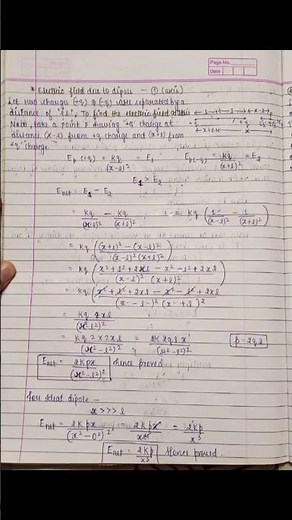 Page No.
Date
* Electric field due to dipole - ① (axis)
Let two charges (+q) & (-q) were separated by a
distance of "2l". To find the electric field at this
Now, take a point P having +q charge at
distance (x-l) from +q charge and (x+l) from
"-q" charge.
Ep (+q) = kq/(x-l)² = E₁ Ep(-q) = kq/(x+l)² = E₂
E₁ > E₂
Enet = E₁ - E₂
= kq/(x-l)² - kq/(x+l)² = kq (1/(x-l)² - 1/(x+l)²)
= kq ((x+l)² - (x-l)²/(x-l)² (x+l)²)
= kq (x² + l² + 2xl - x² - l² + 2xl/(x-l)² (x+l)²)
= kq (x² + l² + 2xl - x² - l² + 2xl/(x-l)² (x+l)²)
= kq 4xl/(x²-l²)²
= kq 2×2xl/(x²-l²)² = 2k2qlx/(x²-l²)² p = 2ql
Enet = 2kpx/(x²-l²)² hence proved
for ideal dipole -
x >>> l
Enet = 2kpx/(x²-0²)² = 2kpx/x⁴ = 2kp/x³
Enet = 2kp/x³ Hence proved.